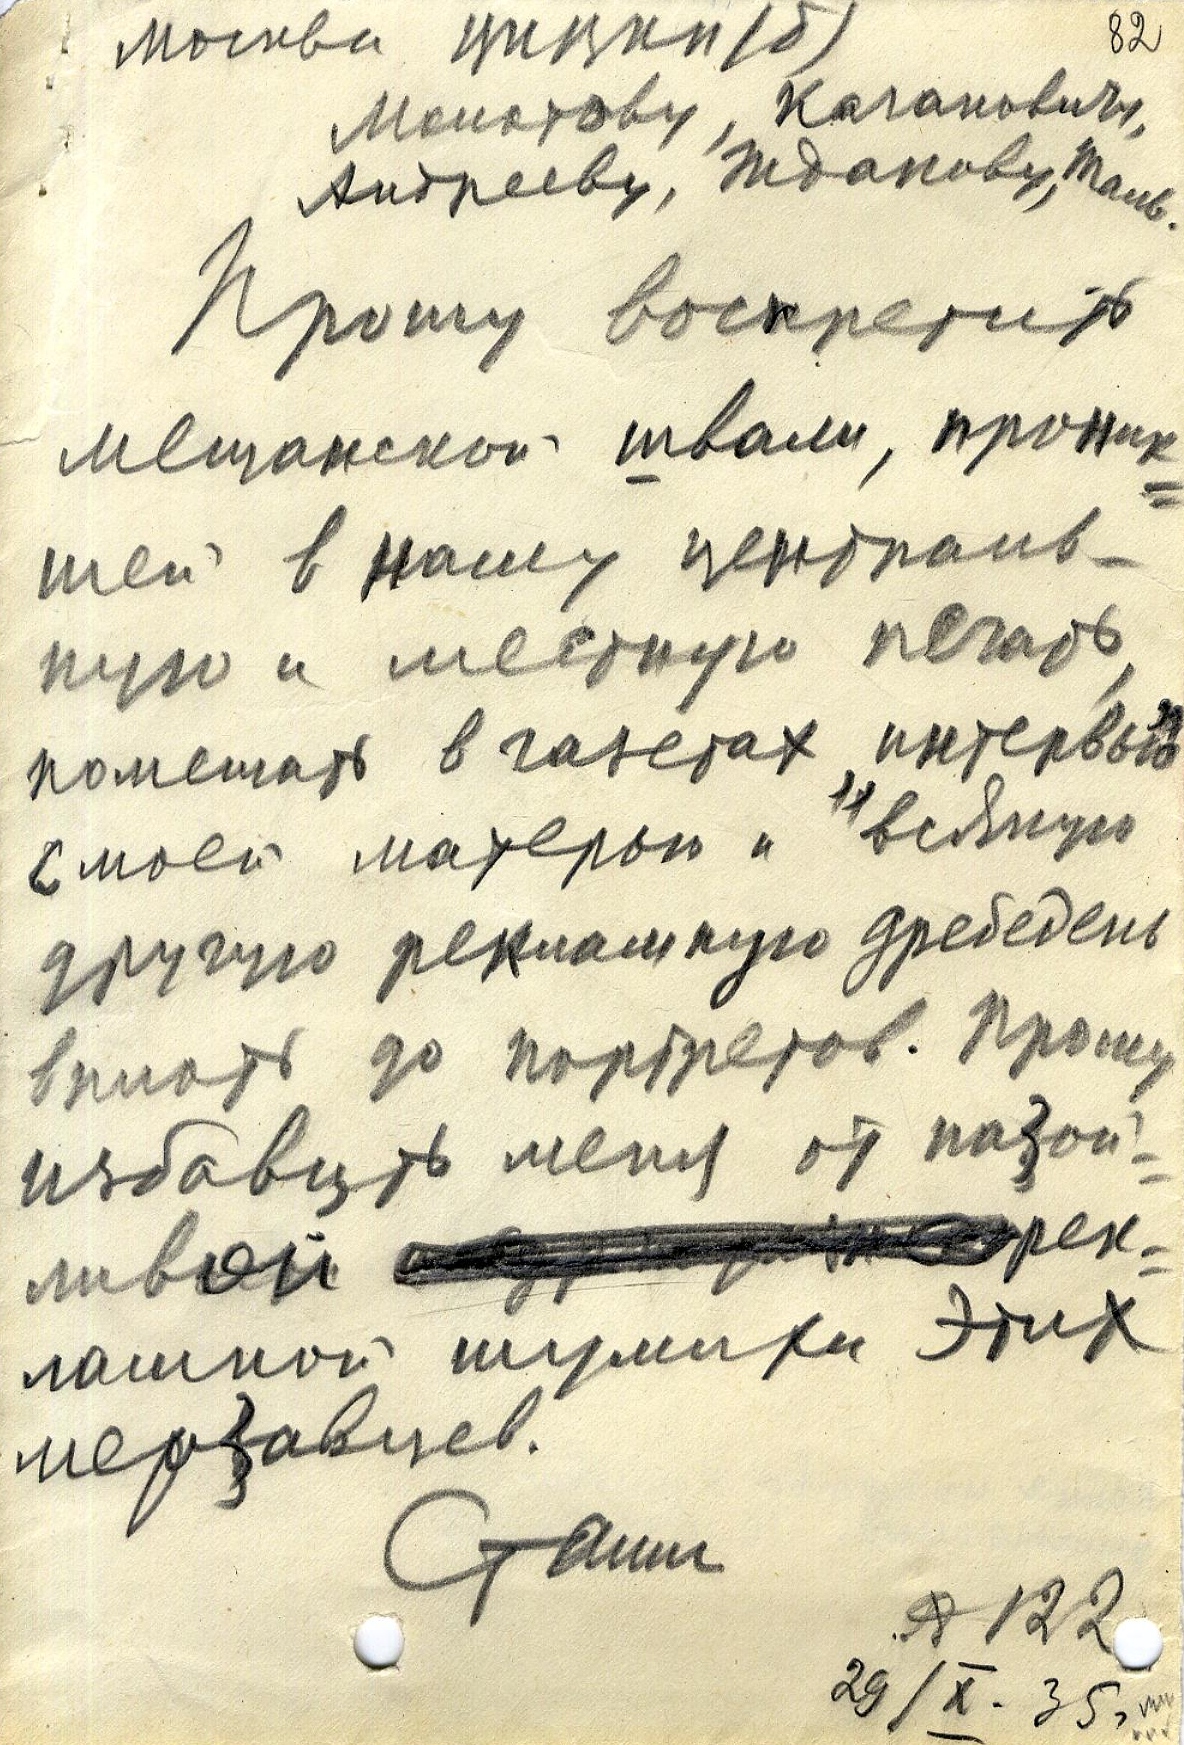 82
Москва ЦК ВКП(б)
Молотову, Кагановичу,
Андрееву, Жданову, Таль.
Прошу воспретить
мещанской швали, проник=
шей в нашу централь-
ную и местную печать,
помещать в газетах "интервью"
с моей матерью и всякую
другую рекламную дребедень
вплоть до портретов. Прошу
избавить меня от назой=
ливой рек=
ламной шумихи этих
мерзавцев.
Сталин
122
29/X. 35,